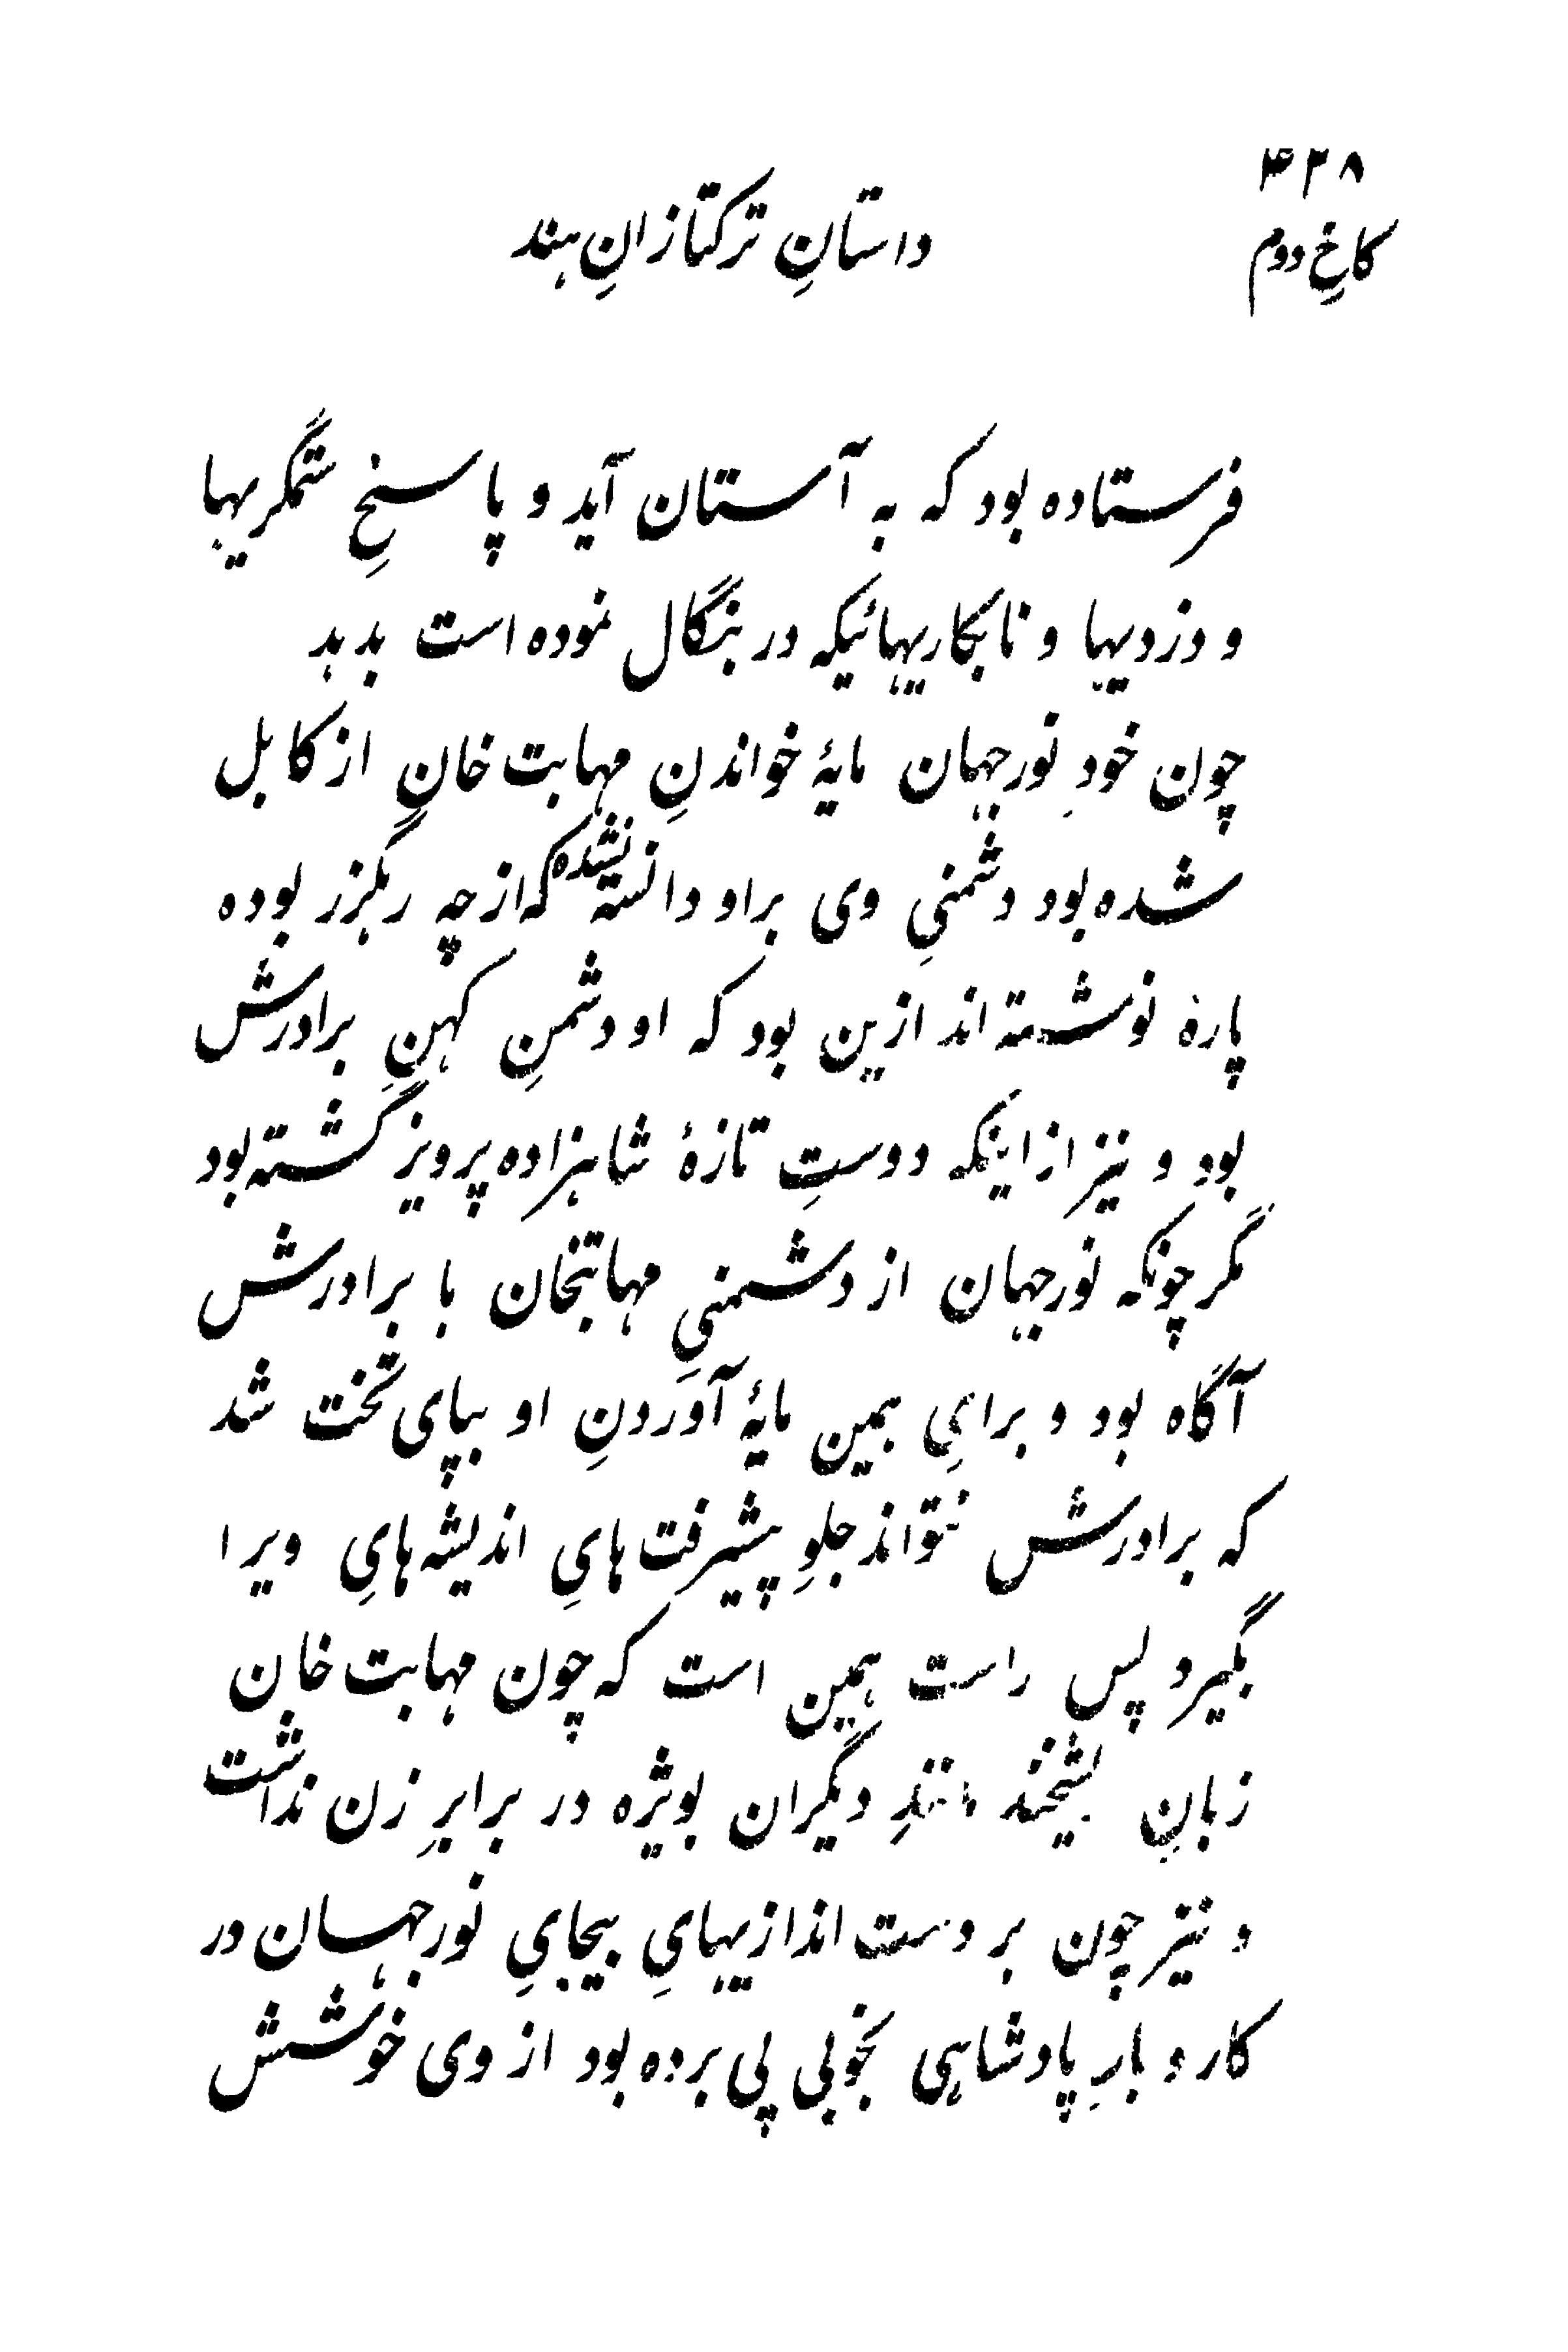 ۴۳۸
کاخِ دوم
داستانِ ترکتازانِ هند
فرستاده بود که به آستان آید و پاسخِ ستمگریها
و دزدیها و نابکاریهائیکه در بنگال نموده است بدهد
چون خودِ نورجهان مایهٔ خواندنِ مهابت خان از کابل
شده بود دشمنیِ وی براو دانسته نشده که از چه رهگزر بوده
پارهٔ نوشته‌اند ازین بود که او دشمنِ کهنِ برادرش
بود و نیز از اینکه دوستِ تازهٔ شاهزاده پرویز گشته بود
مگر چونکه نورجهان از دشمنیِ مهابتخان با برادرش
آگاه بود و برایِ همین مایهٔ آوردنِ او بپای تخت شد
که برادرش نتواند جلوِ پیشرفت هایِ اندیشه هایِ ویرا
بگیرد پس راست همین است که چون مهابت خان
زبانِ مانندِ دیگران بویژه در برابرِ زن نداشت
و نیز چون بر دست اندازیهایِ بیجایِ نورجهان در
کار و بارِ پادشاهی بخوبی پی برده بود از وی خوشش